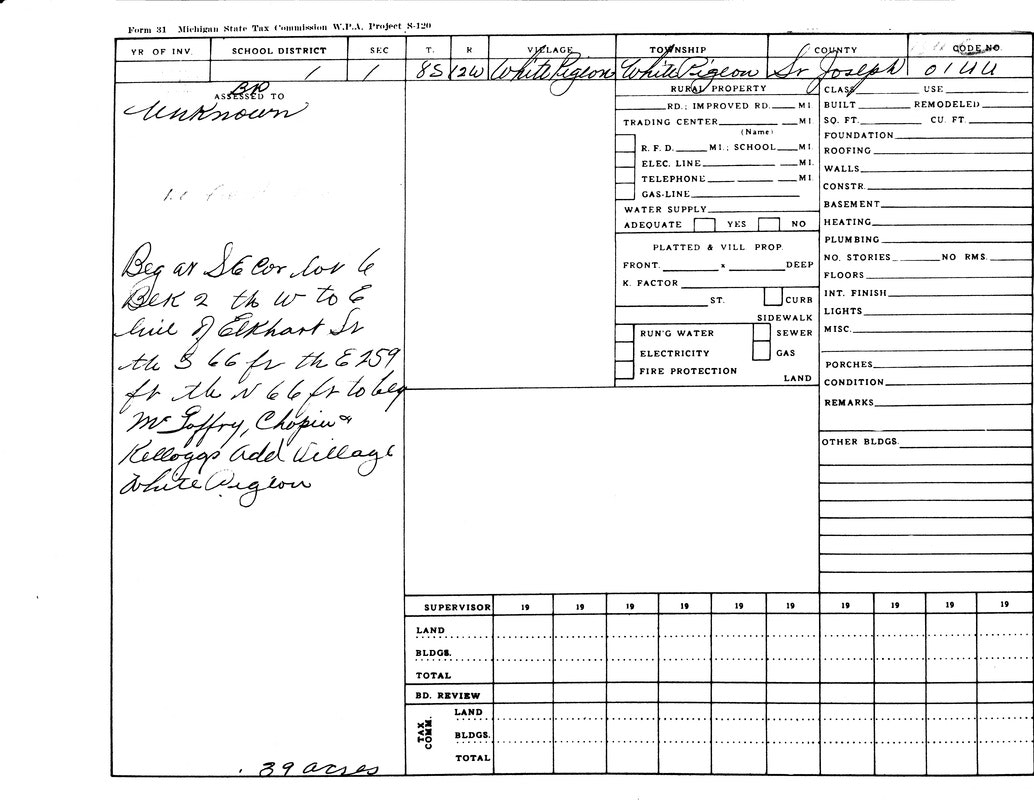 Form 31 Michigan State Tax Commission W.P.A. Project S-120
YR OF INV. SCHOOL DISTRICT SEC T. R VILLAGE TOWNSHIP COUNTY CODE NO.
1 1 8S 12W White Pigeon White Pigeon St Joseph
ASSESSED TO
Unknown
Beg at SE Cor Lot 6
Blk 2 th W to E
line of Elkhart St
th S 66 ft th E 259
ft th N 66 ft to beg
Chopin &
Kelloggs Add Village
White Pigeon
.39 acres
RURAL PROPERTY
RD.; IMPROVED RD. MI.
TRADING CENTER MI.
(Name)
R. F. D. MI.; SCHOOL MI.
ELEC. LINE MI.
TELEPHONE MI.
GAS-LINE
WATER SUPPLY
ADEQUATE YES NO
PLATTED & VILL PROP.
FRONT. x DEEP
K. FACTOR
ST. CURB
SIDEWALK
RUN'G WATER SEWER
ELECTRICITY GAS
FIRE PROTECTION
LAND
CLASS USE
BUILT REMODELED
SQ. FT. CU. FT.
FOUNDATION
ROOFING
WALLS
CONSTR.
BASEMENT
HEATING
PLUMBING
NO. STORIES NO RMS.
FLOORS
INT. FINISH
LIGHTS
MISC.
PORCHES
CONDITION
REMARKS
OTHER BLDGS.
SUPERVISOR 19 19 19 19 19 19 19 19 19 19
LAND
BLDGS.
TOTAL
BD. REVIEW
TAX COMM.
LAND
BLDGS.
TOTAL